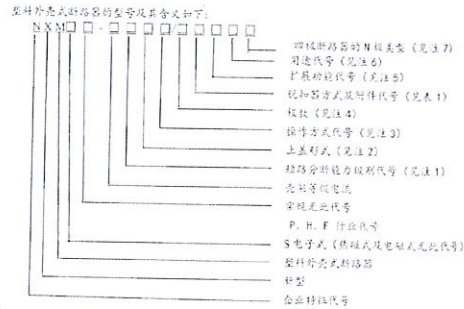 塑料外壳式断路器的型号及其含义如下:
N X M □ □ - □ □ □ □ / □ □ □ □ □
四极断路器的N极类型 (见注7)
用途代号 (见注6)
扩展功能代号 (见注5)
脱扣器方式及附件代号 (见表1)
极数 (见注4)
操作方式代号 (见注3)
上盖形式 (见注2)
短路分断能力级别代号 (见注1)
壳架等级电流
常规无此代号
P、H、F 行业代号
S电子式 (热磁式及电磁式无此代号)
塑料外壳式断路器
新型
企业特征代号